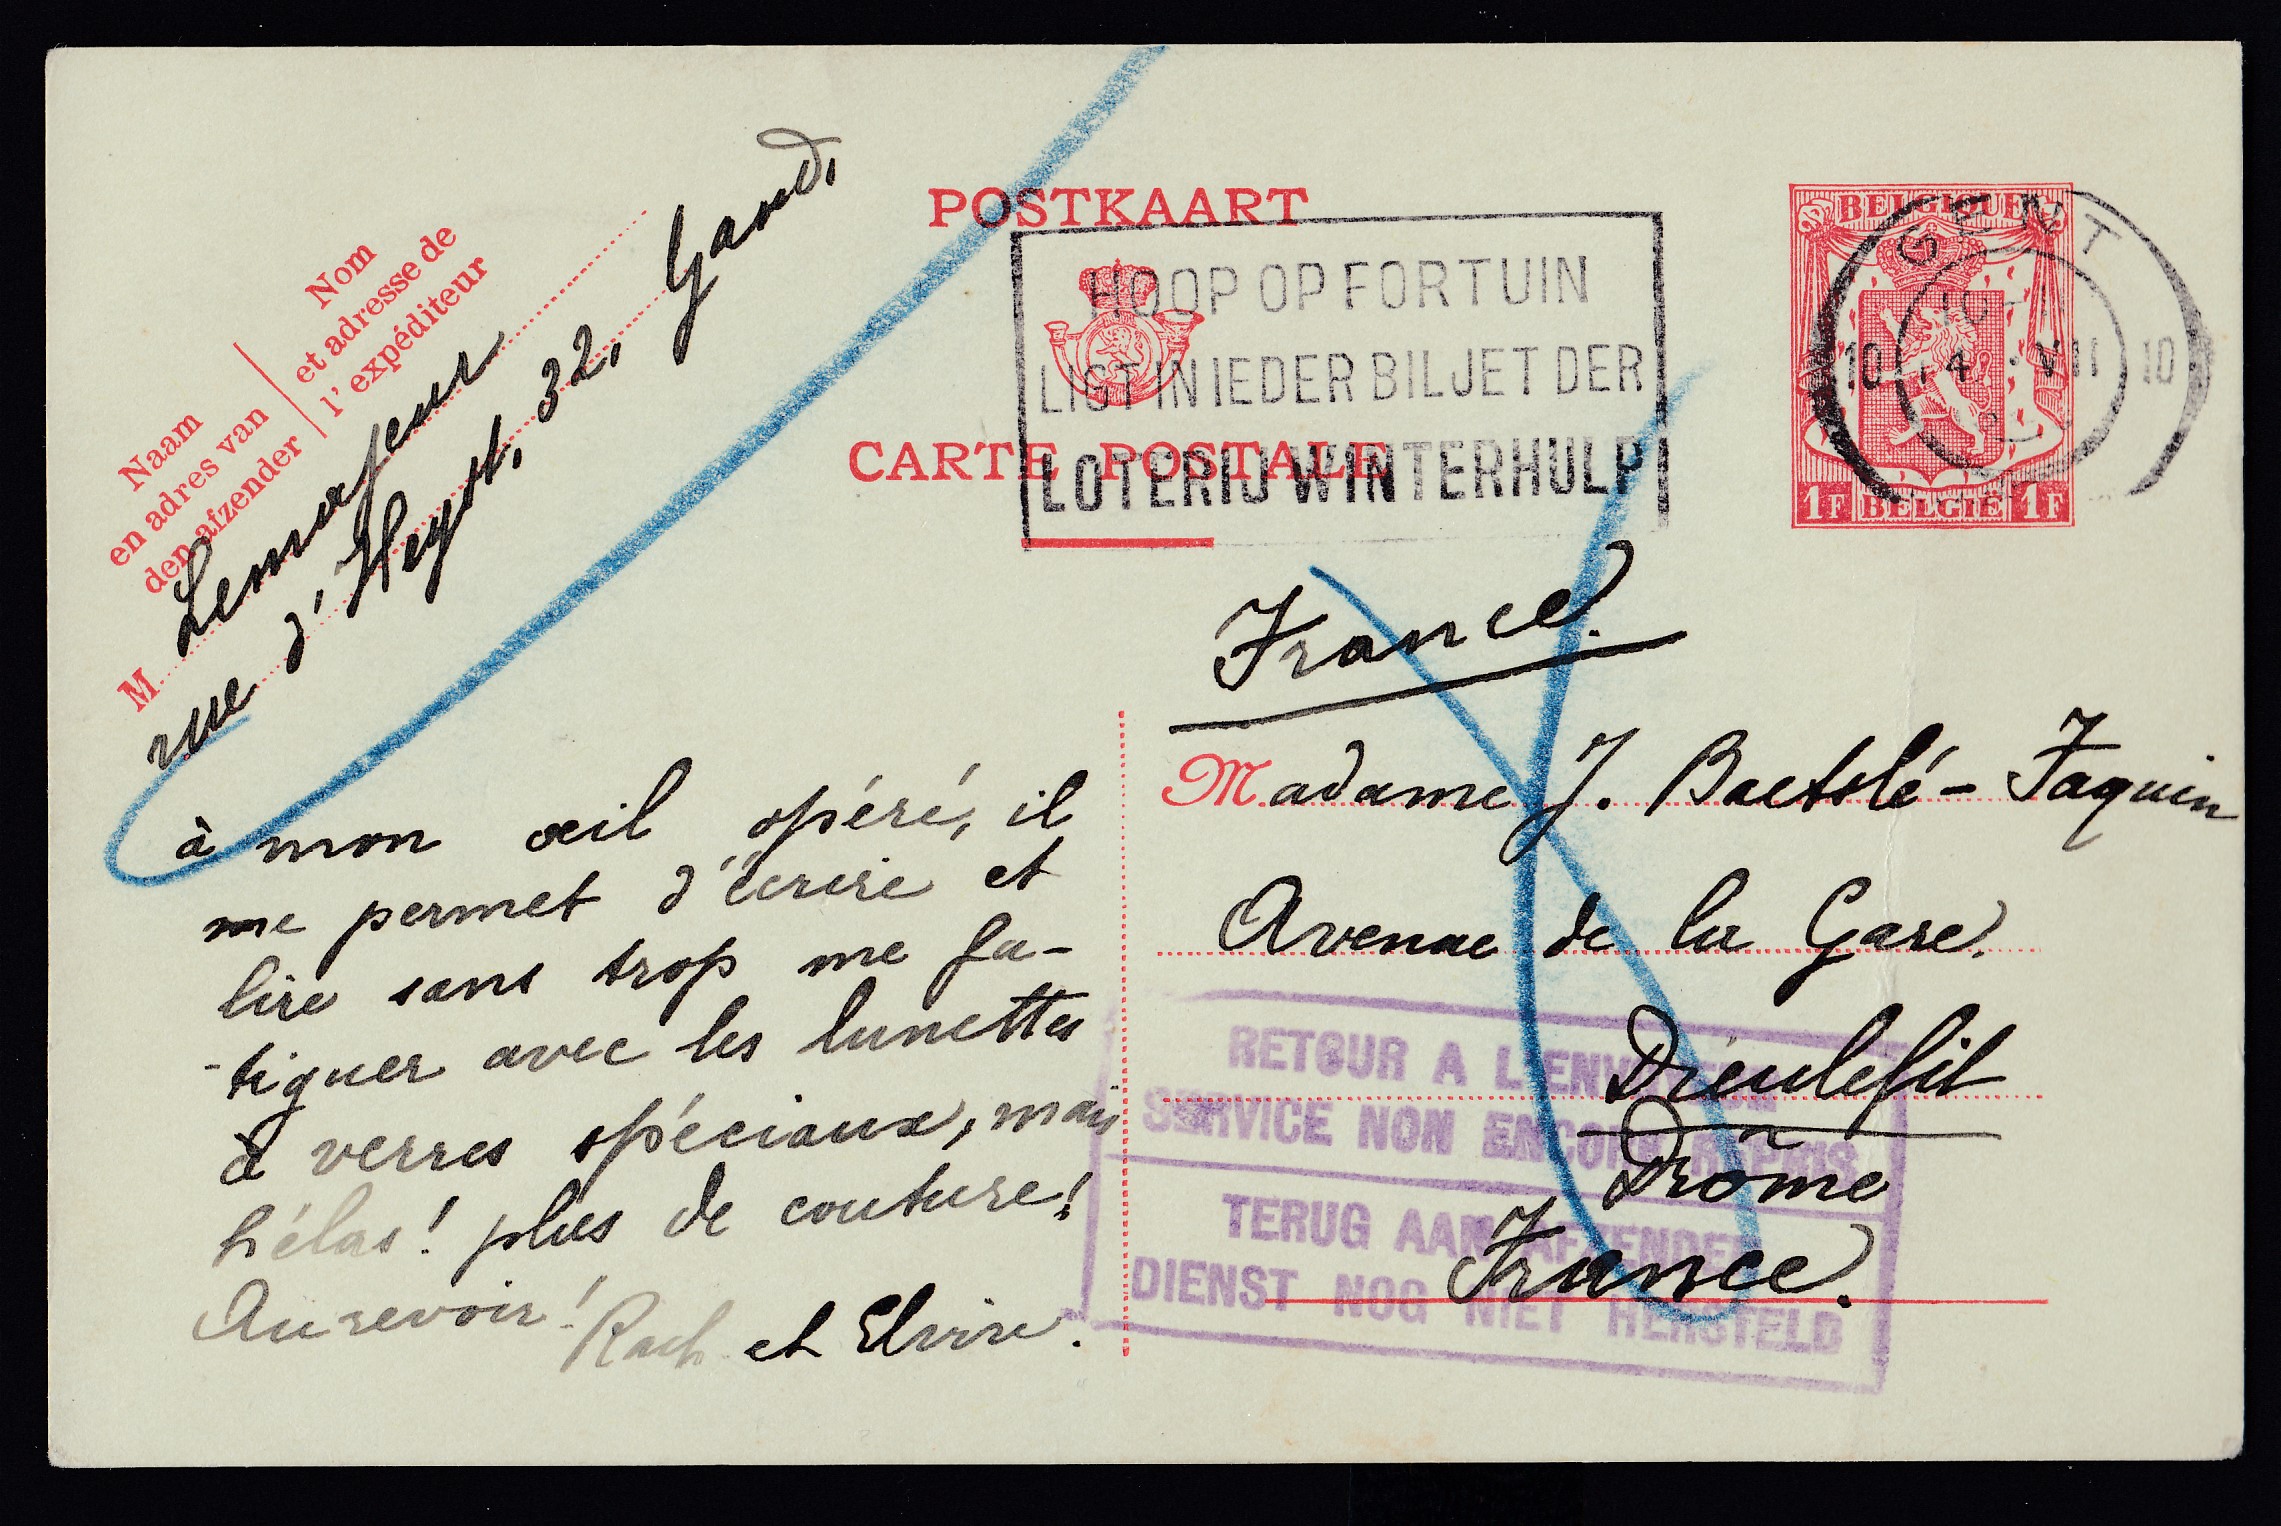 Nom
et adresse de
l'expéditeur
Naam
en adres van
den afzender
M Lemajeur
rue d'Heyst, 32, Gand,
POSTKAART
CARTE POSTALE
HOOP OP FORTUIN
LIGT IN IEDER BILJET DER
LOTERIJ WINTERHULP
BELGIQUE
1F BELGIE 1F
GENT
10
14 VII
10
France.
Madame J. Baetslé - Jaquin
Avenue de la Gare.
Dieulefit
Drôme
France.
à mon œil opéré, il
me permet d'écrire et
lire sans trop me fa-
-tiguer avec les lunettes
à verres spéciaux, mais
hélas! plus de couture!
Au revoir!
Rach et Elvire.
RETOUR A L'ENVOYEUR
SERVICE NON ENCORE REPRIS
TERUG AAN AFZENDER
DIENST NOG NIET HERSTELD